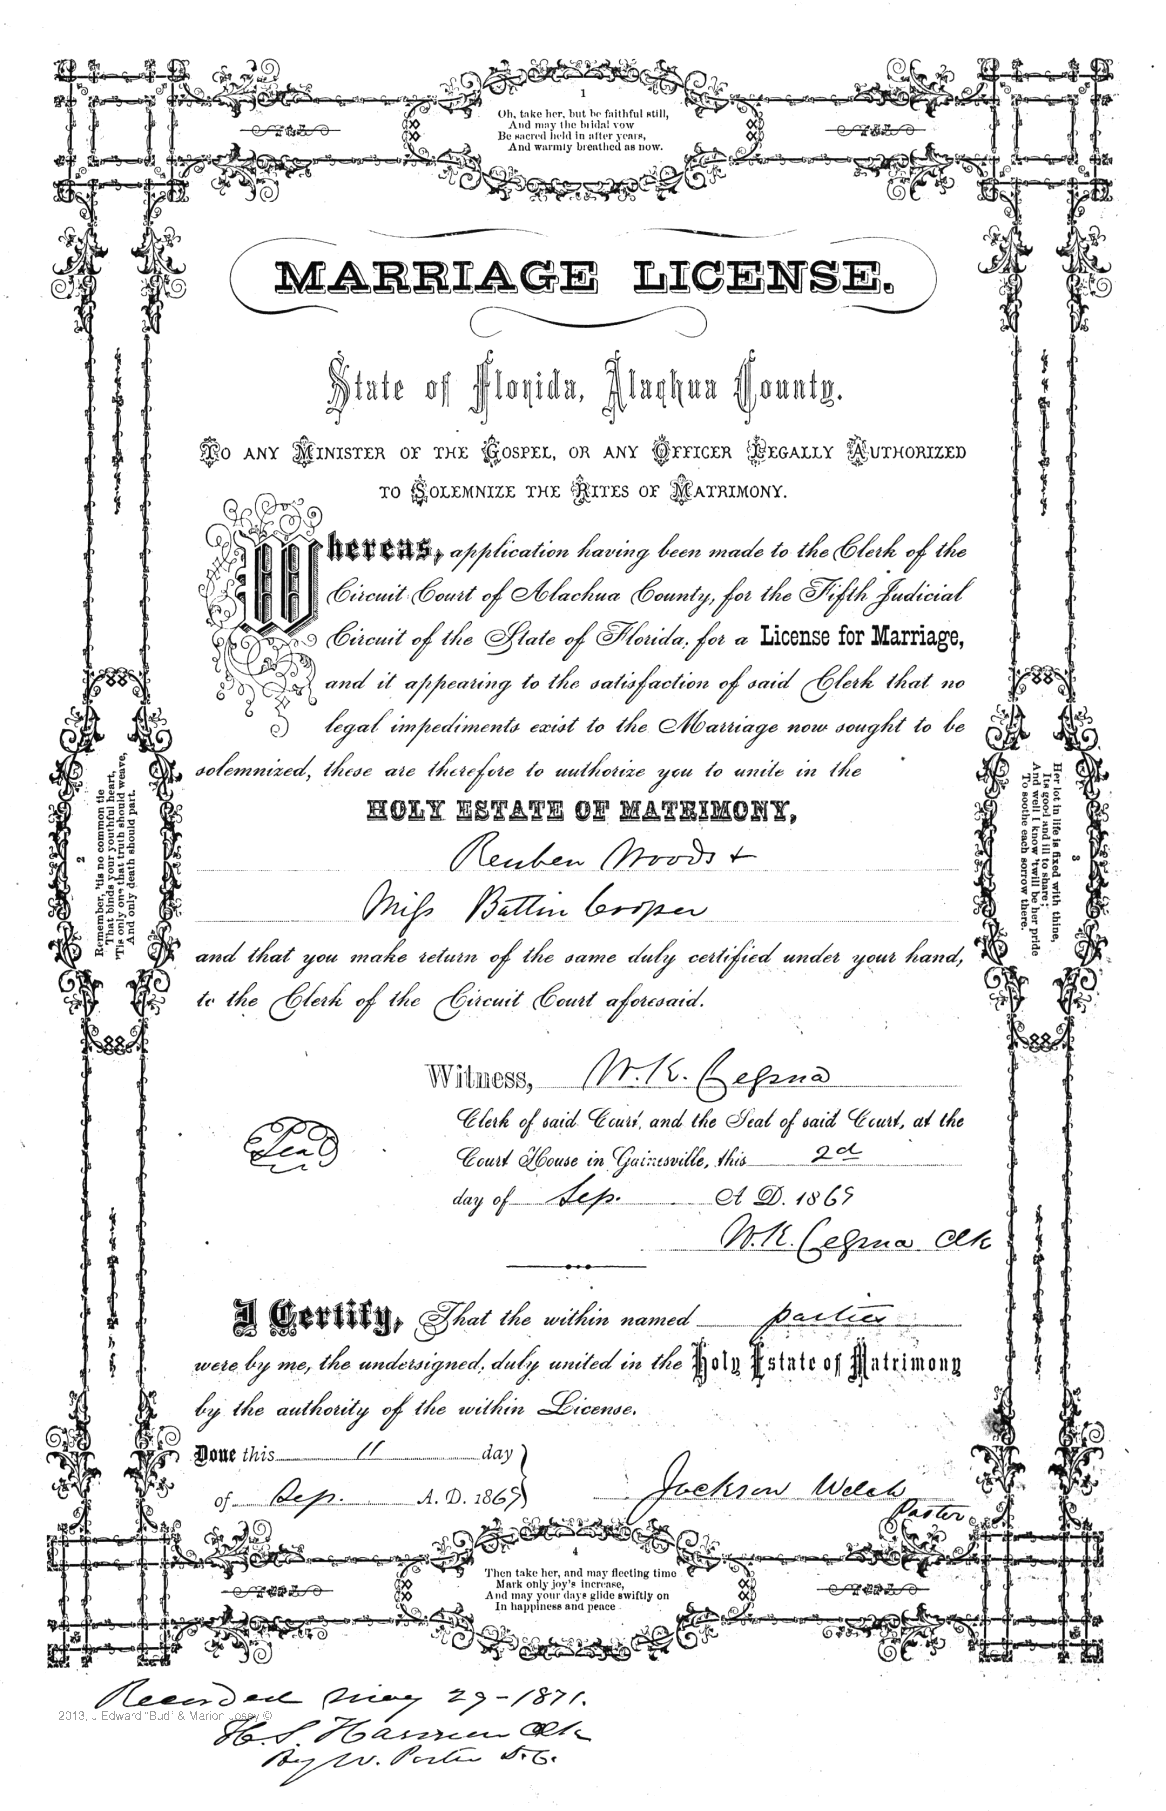 1
Oh, take her, but be faithful still,
And may the bridal vow
Be sacred held in after years,
And warmly breathed as now.
MARRIAGE LICENSE.
State of Florida, Alachua County.
TO ANY MINISTER OF THE GOSPEL, OR ANY OFFICER LEGALLY AUTHORIZED
TO SOLEMNIZE THE RITES OF MATRIMONY.
Whereas, application having been made to the Clerk of the
Circuit Court of Alachua County, for the Fifth Judicial
Circuit of the State of Florida, for a License for Marriage,
and it appearing to the satisfaction of said Clerk that no
legal impediments exist to the Marriage now sought to be
solemnized, these are therefore to authorize you to unite in the
HOLY ESTATE OF MATRIMONY,
Reuben Woods +
Miss Battin Cooper
and that you make return of the same duly certified under your hand,
to the Clerk of the Circuit Court aforesaid.
2
Remember, 'tis no common tie
That binds your youthful heart,
'Tis only one that truth should weave,
And only death should part.
3
Her lot in life is fixed with thine,
Its good and ill to share;
And well I know 'twill be her pride
To soothe each sorrow there.
Witness, W. K. Cessna
Clerk of said Court, and the Seal of said Court, at the
Seal
Court House in Gainesville, this 2d
day of Sep. A D. 1869
W. K. Cessna Clk
I Certify, That the within named parties
were by me, the undersigned, duly united in the Holy Estate of Matrimony
by the authority of the within License.
Done this 11 day
of Sep. A. D. 1869
Jackson Welch
Paster
4
Then take her, and may fleeting time
Mark only joy's increase,
And may your days glide swiftly on
In happiness and peace
Recorded May 29-1871.
2013, J Edward "Bud" & Marion Josey ©
H. S. Harmon Clk
By W. Porter D. C.